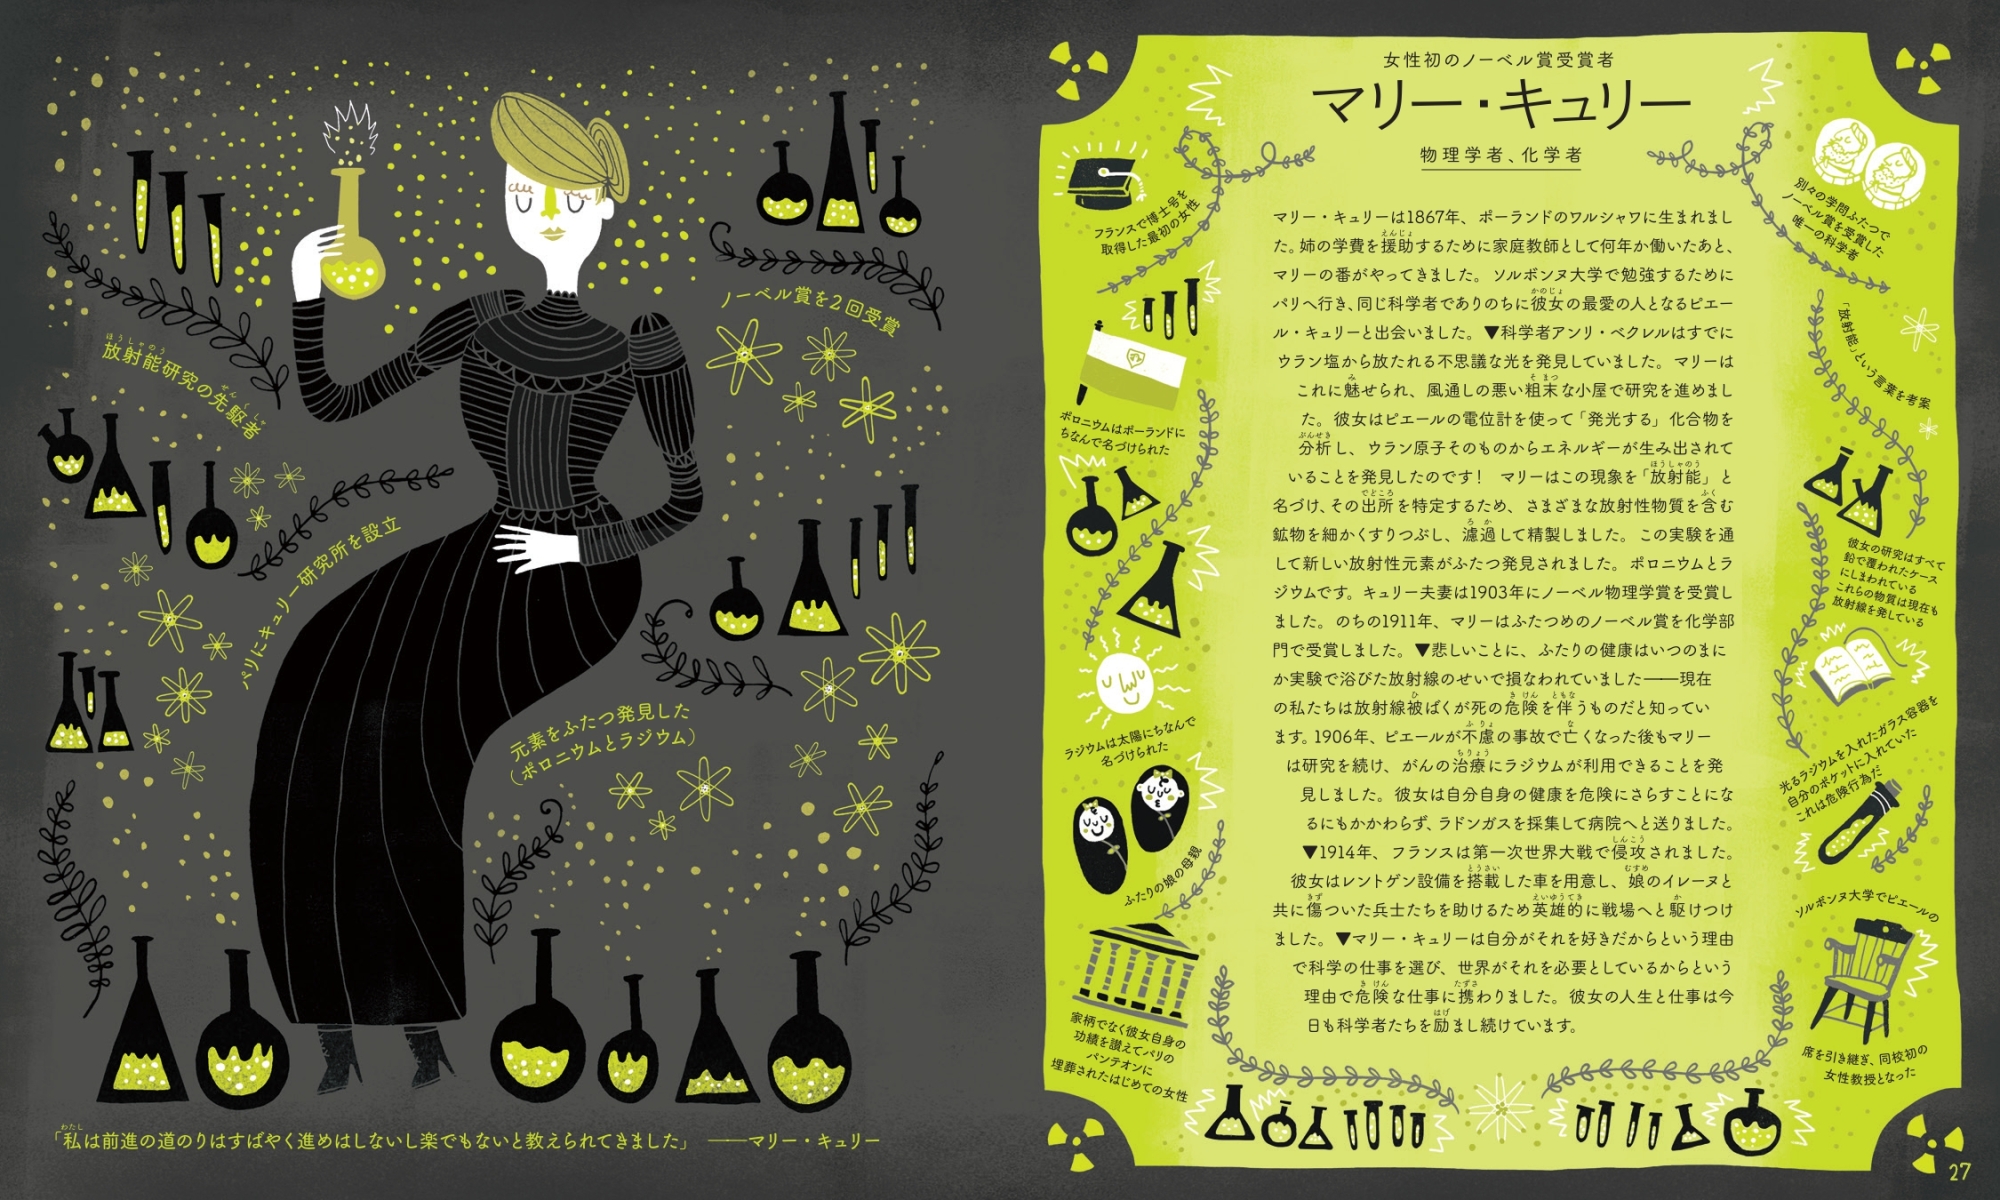 放射能研究の先駆者
ノーベル賞を2回受賞
パリにキュリー研究所を設立
元素をふたつ発見した
(ポロニウムとラジウム)
「私は前進の道のりはすばやく進めはしないし楽でもないと教えられてきました」 ──マリー・キュリー
女性初のノーベル賞受賞者
マリー・キュリー
物理学者、化学者
マリー・キュリーは1867年、ポーランドのワルシャワに生まれまし
た。姉の学費を援助するために家庭教師として何年か働いたあと、
マリーの番がやってきました。ソルボンヌ大学で勉強するために
パリへ行き、同じ科学者でありのちに彼女の最愛の人となるピエー
ル・キュリーと出会いました。▼科学者アンリ・ベクレルはすでに
ウラン塩から放たれる不思議な光を発見していました。マリーは
これに魅せられ、風通しの悪い粗末な小屋で研究を進めまし
た。彼女はピエールの電位計を使って「発光する」化合物を
分析し、ウラン原子そのものからエネルギーが生み出されて
いることを発見したのです! マリーはこの現象を「放射能」と
名づけ、その出所を特定するため、さまざまな放射性物質を含む
鉱物を細かくすりつぶし、濾過して精製しました。この実験を通
して新しい放射性元素がふたつ発見されました。ポロニウムとラ
ジウムです。キュリー夫妻は1903年にノーベル物理学賞を受賞し
ました。のちの1911年、マリーはふたつめのノーベル賞を化学部
門で受賞しました。▼悲しいことに、ふたりの健康はいつのまに
か実験で浴びた放射線のせいで損なわれていました──現在
の私たちは放射線被ばくが死の危険を伴うものだと知ってい
ます。1906年、ピエールが不慮の事故で亡くなった後もマリー
は研究を続け、がんの治療にラジウムが利用できることを発
見しました。彼女は自分自身の健康を危険にさらすことにな
るにもかかわらず、ラドンガスを採集して病院へと送りました。
▼1914年、フランスは第一次世界大戦で侵攻されました。
彼女はレントゲン設備を搭載した車を用意し、娘のイレーヌと
共に傷ついた兵士たちを助けるため英雄的に戦場へと駆けつけ
ました。▼マリー・キュリーは自分がそれを好きだからという理由
で科学の仕事を選び、世界がそれを必要としているからという
理由で危険な仕事に携わりました。彼女の人生と仕事は今
日も科学者たちを励まし続けています。
フランスで博士号を
取得した最初の女性
ポロニウムはポーランドに
ちなんで名づけられた
ラジウムは太陽にちなんで
名づけられた
ふたりの娘の母親
家柄でなく彼女自身の
功績を讃えてパリの
パンテオンに
埋葬されたはじめての女性
別々の学問ふたつで
ノーベル賞を受賞した
唯一の科学者
「放射能」という言葉を考案
彼女の研究はすべて
鉛で覆われたケース
にしまわれている
これらの物質は現在も
放射線を発している
光るラジウムを入れたガラス容器を
自分のポケットに入れていた
これは危険行為だ
ソルボンヌ大学でピエールの
席を引き継ぎ、同校初の
女性教授となった
27